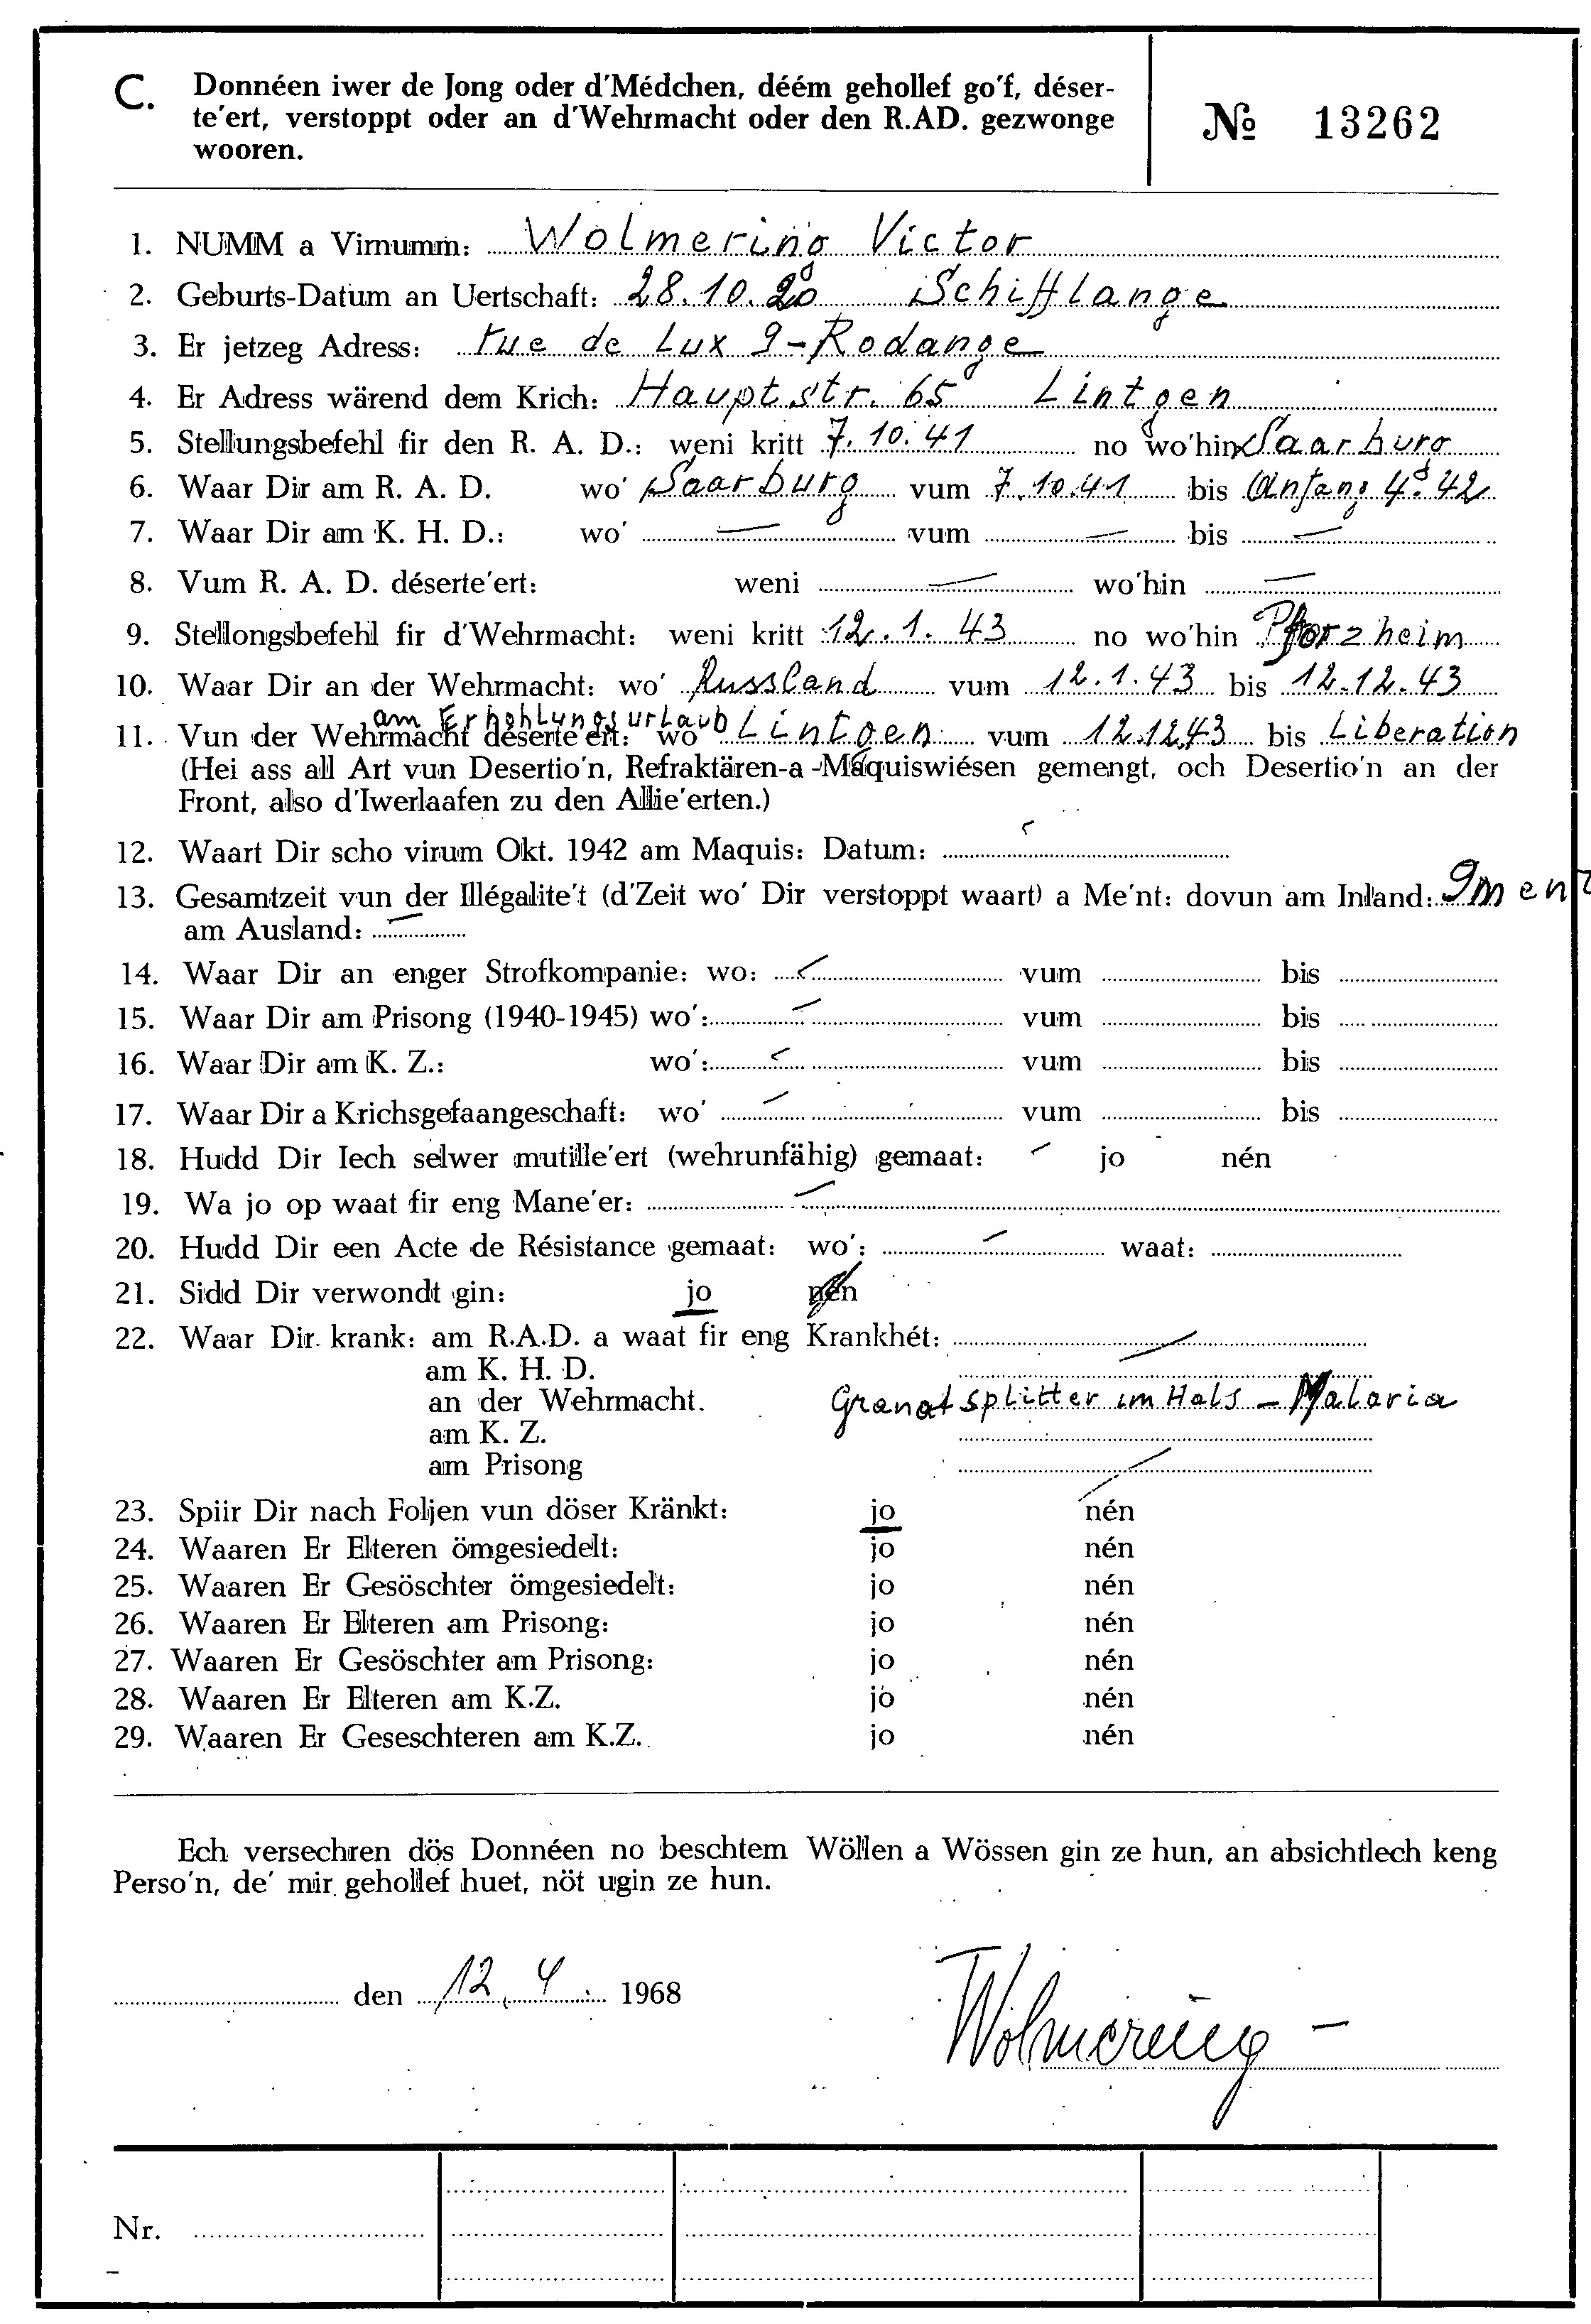 C. Donnéen iwer de Jong oder d'Médchen, déém gehollef go'f, déser-
te'ert, verstoppt oder an d'Wehrmacht oder den R.AD. gezwonge
wooren.
№ 13262
1. NUMM a Virnumm: Wolmering Victor
2. Geburts-Datum an Uertschaft: 28.10.20 Schifflange
3. Er jetzeg Adress: rue de Lux 9-Rodange
4. Er Adress wärend dem Krich: Hauptstr. 65 Lintgen
5. Stellungsbefehl fir den R. A. D.: weni kritt 7.10.41 no wo'hin Saarburg
6. Waar Dir am R. A. D. wo' Saarburg vum 7.10.41 bis Anfang 4.42
7. Waar Dir am K. H. D.: wo' — vum — bis —
8. Vum R. A. D. déserte'ert: weni — wo'hin —
9. Stellongsbefehl fir d'Wehrmacht: weni kritt 12.1.43 no wo'hin Pforzheim
10. Waar Dir an der Wehrmacht: wo' Russland vum 12.1.43 bis 12.12.43
am Erhohlungsurlaub
11. Vun der Wehrmacht déserte'ert: wo' Lintgen vum 12.12.43 bis Liberation
(Hei ass all Art vun Desertio'n, Refraktären-a -Maquiswiésen gemengt, och Desertio'n an der
Front, also d'Iwerlaafen zu den Allie'erten.)
12. Waart Dir scho virum Okt. 1942 am Maquis: Datum:
13. Gesamtzeit vun der Illégalite't (d'Zeit wo' Dir verstoppt waart) a Me'nt: dovun am Inland: 9 ment
am Ausland: —
14. Waar Dir an enger Strofkompanie: wo: — vum bis
15. Waar Dir am Prisong (1940-1945) wo': — vum bis
16. Waar Dir am K. Z.: wo': — vum bis
17. Waar Dir a Krichsgefaangeschaft: wo' — vum bis
18. Hudd Dir Iech selwer mutille'ert (wehrunfähig) gemaat: — jo nén
19. Wa jo op waat fir eng Mane'er: —
20. Hudd Dir een Acte de Résistance gemaat: wo': — waat:
21. Sidd Dir verwondt gin: jo nén
22. Waar Dir krank: am R.A.D. a waat fir eng Krankhét: —
am K. H. D.
an der Wehrmacht. Granatsplitter im Hals – Malaria
am K. Z.
am Prisong —
23. Spiir Dir nach Foljen vun döser Kränkt: jo nén
24. Waaren Er Elteren ömgesiedelt: jo nén
25. Waaren Er Gesöschter ömgesiedelt: jo nén
26. Waaren Er Elteren am Prisong: jo nén
27. Waaren Er Gesöschter am Prisong: jo nén
28. Waaren Er Elteren am K.Z. jo nén
29. Waaren Er Geseschteren am K.Z. jo nén
Ech versechren dös Donnéen no beschtem Wöllen a Wössen gin ze hun, an absichtlech keng
Perso'n, de' mir gehollef huet, nöt ugin ze hun.
den 12.4. 1968
Wolmering
Nr.